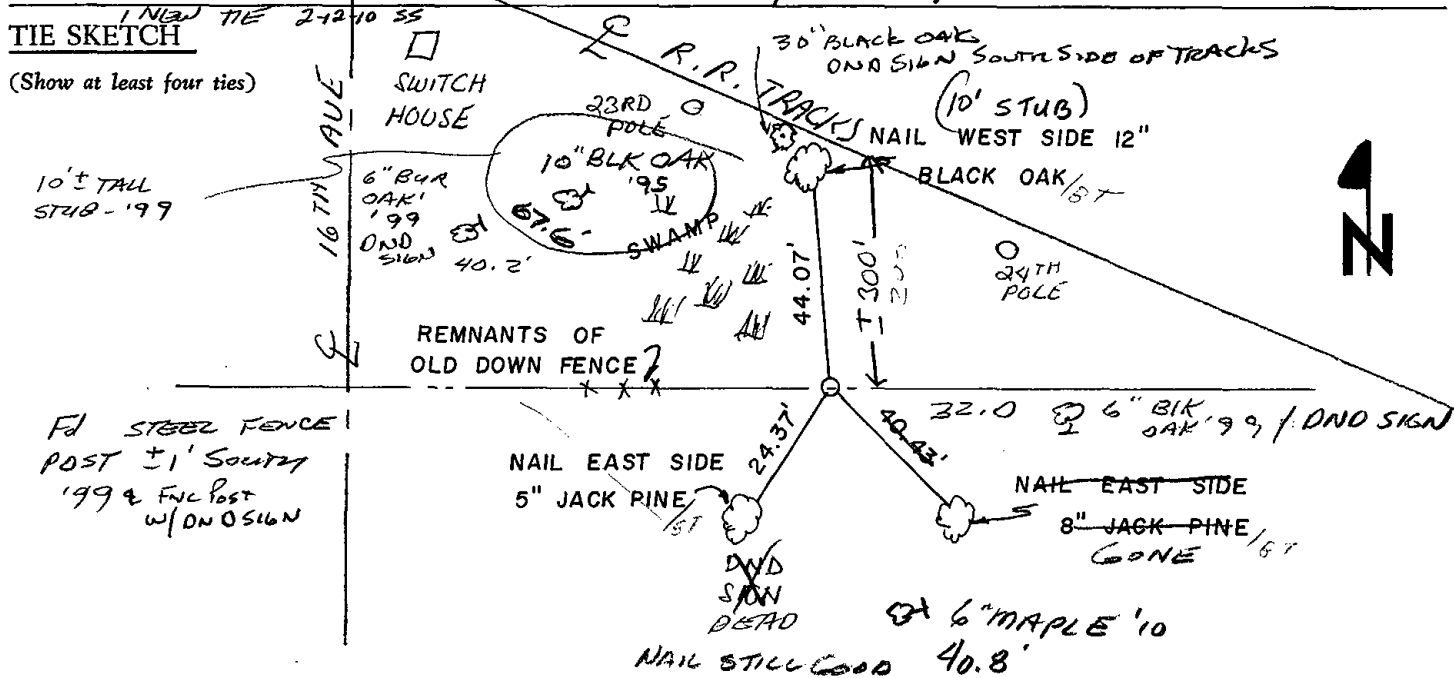 1 NEW TIE 2-12-10 SS
TIE SKETCH
(Show at least four ties)
SWITCH
HOUSE
16TH AVE
℄
℄ R.R. TRACKS
30" BLACK OAK
DND SIGN SOUTH SIDE OF TRACKS
(10' STUB)
NAIL WEST SIDE 12"
BLACK OAK /BT
23RD
POLE
10" BLK OAK
'95
67.6'
10'± TALL
STUB - '99
6" BUR
OAK'
'99
DND
SIGN
40.2'
SWAMP
44.07'
± 300'
24TH
POLE
N
REMNANTS OF
OLD DOWN FENCE
X X X
Fd STEEL FENCE
POST ±1' SOUTH
'99 & FNC POST
W/DND SIGN
32.0
6" BLK
OAK '99 / DND SIGN
24.37'
40.43'
NAIL EAST SIDE
5" JACK PINE /BT
NAIL EAST SIDE
8" JACK PINE /BT
GONE
DND
SIGN
DEAD
NAIL STILL GOOD
6" MAPLE '10
40.8'